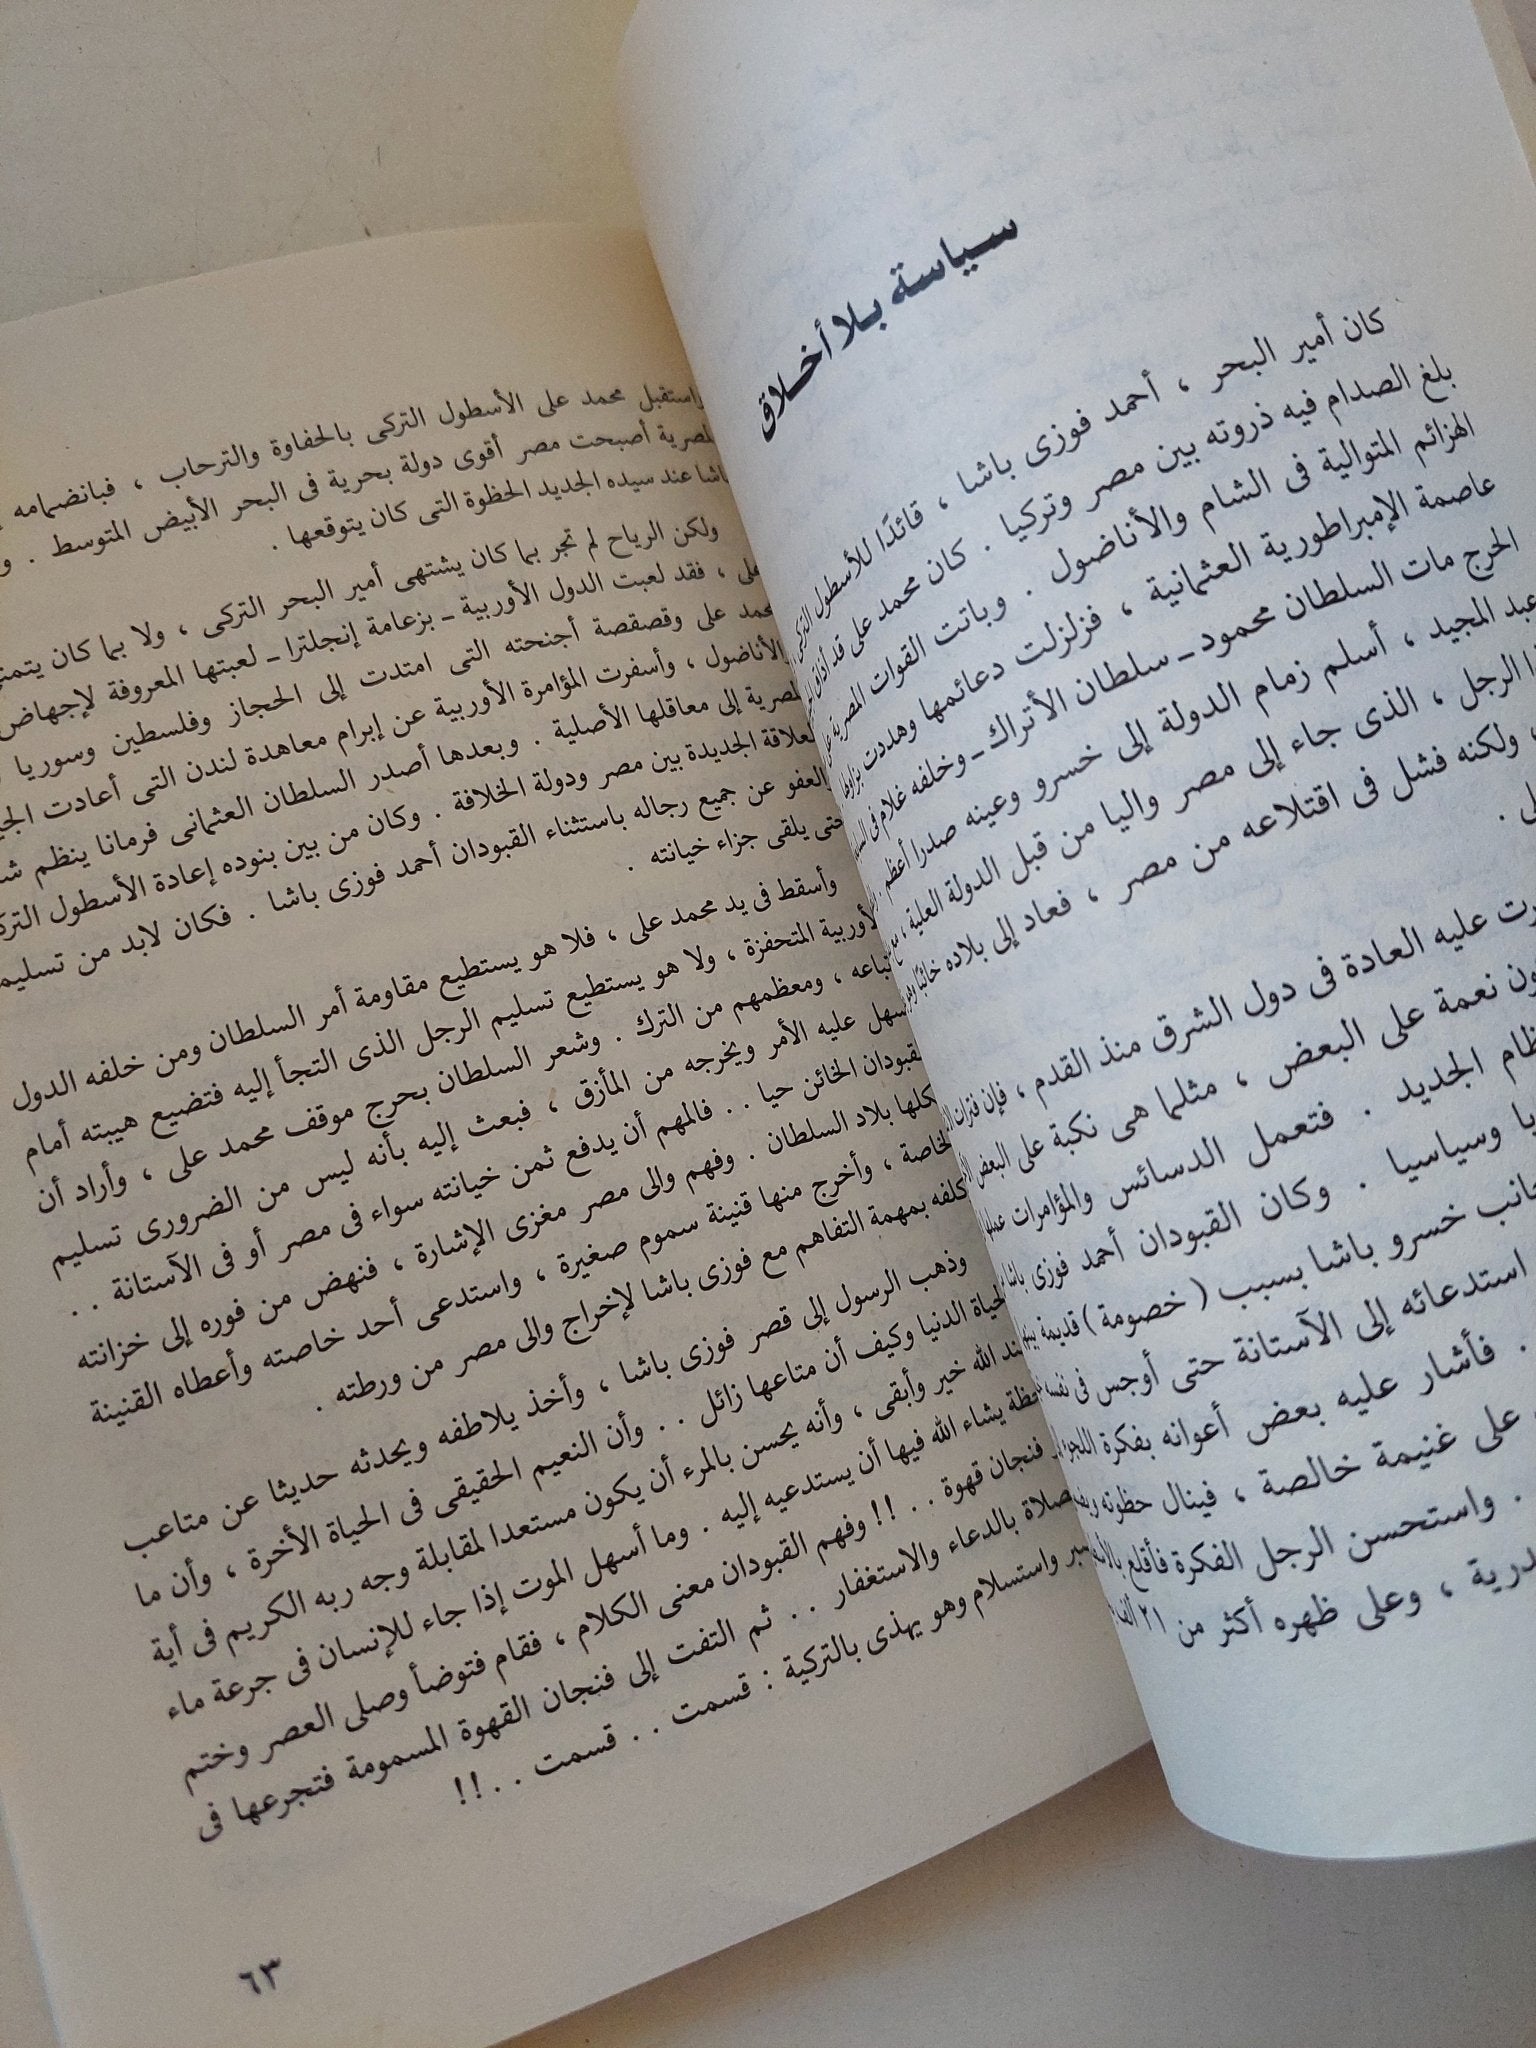 سياسة بلا أخلاق
كان أمير البحر ، أحمد فوزى باشا ، قائدًا للأسطول التركى
بلغ الصدام فيه ذروته بين مصر وتركيا . كان محمد على قد أذاق
الهزائم المتوالية فى الشام والأناضول . وباتت القوات المصرية على
عاصمة الإمبراطورية العثمانية ، فزلزلت دعائمها وهددت بزوالها
الحرج مات السلطان محمود ـ سلطان الأتراك ـ وخلفه غلام فى
عبد المجيد ، أسلم زمام الدولة إلى خسرو وعينه صدرا أعظم .
الرجل ، الذى جاء إلى مصر واليا من قبل الدولة العلية ،
، ولكنه فشل فى اقتلاعه من مصر ، فعاد إلى بلاده خائبًا
عليه العادة فى دول الشرق منذ القدم ، فإن فترات
نعمة على البعض ، مثلما هى نكبة على البعض
الجديد . فتعمل الدسائس والمؤامرات عملها
وسياسيا . وكان القبودان أحمد فوزى باشا
خسرو باشا بسبب ( خصومة ) قديمة
استدعائه إلى الآستانة حتى أوجس فى نفسه
. فأشار عليه بعض أعوانه بفكرة اللجوء
على غنيمة خالصة ، فينال حظوته
. واستحسن الرجل الفكرة فأقلع
، وعلى ظهره أكثر من ٢١ ألف
استقبل محمد على الأسطول التركى بالحفاوة والترحاب ، فبانضمامه
أصبحت مصر أقوى دولة بحرية فى البحر الأبيض المتوسط .
عند سيده الجديد الحظوة التى كان يتوقعها .
ولكن الرياح لم تجر بما كان يشتهى أمير البحر التركى ، ولا بما كان
، فقد لعبت الدول الأوربية ـ بزعامة إنجلترا ـ لعبتها المعروفة لإجهاض
على وقصقصة أجنحته التى امتدت إلى الحجاز وفلسطين وسوريا
الأناضول ، وأسفرت المؤامرة الأوربية عن إبرام معاهدة لندن التى أعادت
إلى معاقلها الأصلية . وبعدها أصدر السلطان العثمانى فرمانا ينظم
العلاقة الجديدة بين مصر ودولة الخلافة . وكان من بين بنوده إعادة الأسطول
العفو عن جميع رجاله باستثناء القبودان أحمد فوزى باشا . فكان لابد من
حتى يلقى جزاء خيانته .
وأسقط فى يد محمد على ، فلا هو يستطيع مقاومة أمر السلطان ومن خلفه الدول
الأوربية المتحفزة ، ولا هو يستطيع تسليم الرجل الذى التجأ إليه فتضيع هيبته أمام
، ومعظمهم من الترك . وشعر السلطان بحرج موقف محمد على ، وأراد أن
عليه الأمر ويخرجه من المأزق ، فبعث إليه بأنه ليس من الضرورى تسليم
القبودان الخائن حيا . . فالمهم أن يدفع ثمن خيانته سواء فى مصر أو فى الآستانة . .
بلاد السلطان . وفهم والى مصر مغزى الإشارة ، فنهض من فوره إلى خزانته
الخاصة ، وأخرج منها قنينة سموم صغيرة ، واستدعى أحد خاصته وأعطاه القنينة
بمهمة التفاهم مع فوزى باشا لإخراج والى مصر من ورطته .
وذهب الرسول إلى قصر فوزى باشا ، وأخذ يلاطفه ويحدثه حديثا عن متاعب
الدنيا وكيف أن متاعها زائل . . وأن النعيم الحقيقى فى الحياة الأخرة ، وأن ما
الله خير وأبقى ، وأنه يحسن بالمرء أن يكون مستعدا لمقابلة وجه ربه الكريم فى أية
يشاء الله فيها أن يستدعيه إليه . وما أسهل الموت إذا جاء للإنسان فى جرعة ماء
فنجان قهوة . . !! وفهم القبودان معنى الكلام ، فقام فتوضأ وصلى العصر وختم
بالدعاء والاستغفار . . ثم التفت إلى فنجان القهوة المسمومة فتجرعها فى
واستسلام وهو يهذى بالتركية : قسمت . . قسمت . . !!
٦٣